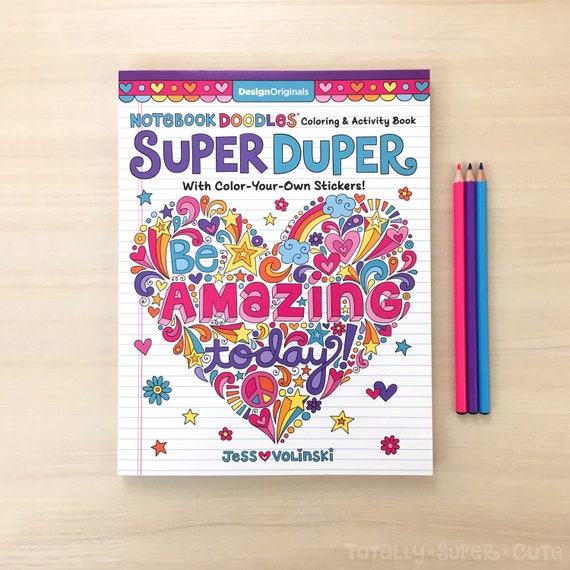 DesignOriginals
NOTEBOOK DOODLES® Coloring & Activity Book
SUPER DUPER
With Color-Your-Own Stickers!
Be
AMAZING
today!
Jess Volinski
TOTALLY★SUPER★CUTE